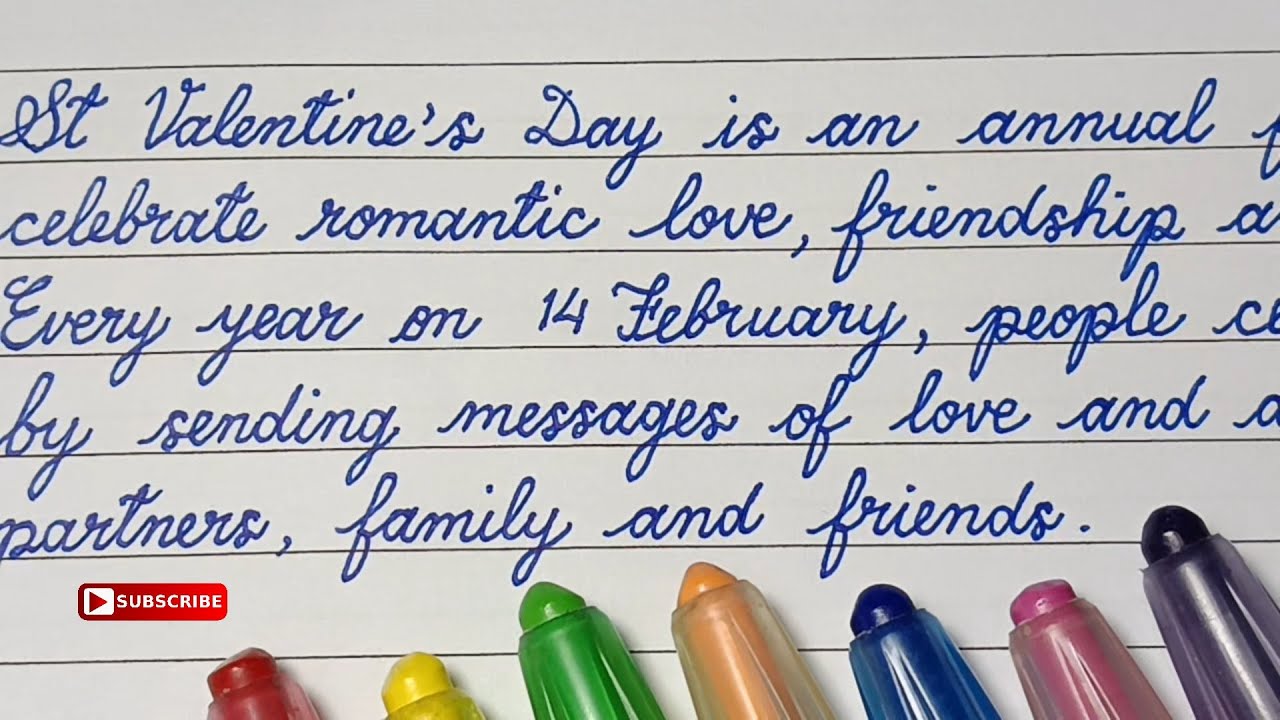 St Valentine's Day is an annual
celebrate romantic love, friendship
Every year on 14 February, people
by sending messages of love and
partners, family and friends.
SUBSCRIBE